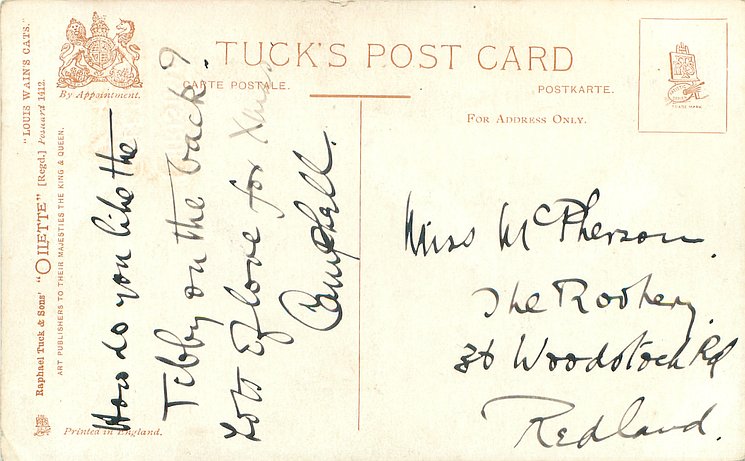 TUCK'S POST CARD
CARTE POSTALE.
POSTKARTE.
FOR ADDRESS ONLY.
By Appointment.
"LOUIS WAIN'S CATS."
Raphael Tuck & Sons' "OILETTE" [Regd.] Postcard 1412.
ART PUBLISHERS TO THEIR MAJESTIES THE KING & QUEEN.
Printed in England.
How do you like the
Tibby on the back?
Lots of love for Xmas
Campbell.
Miss McPherson.
The Rookery.
36 Woodstock Rd
Redland.